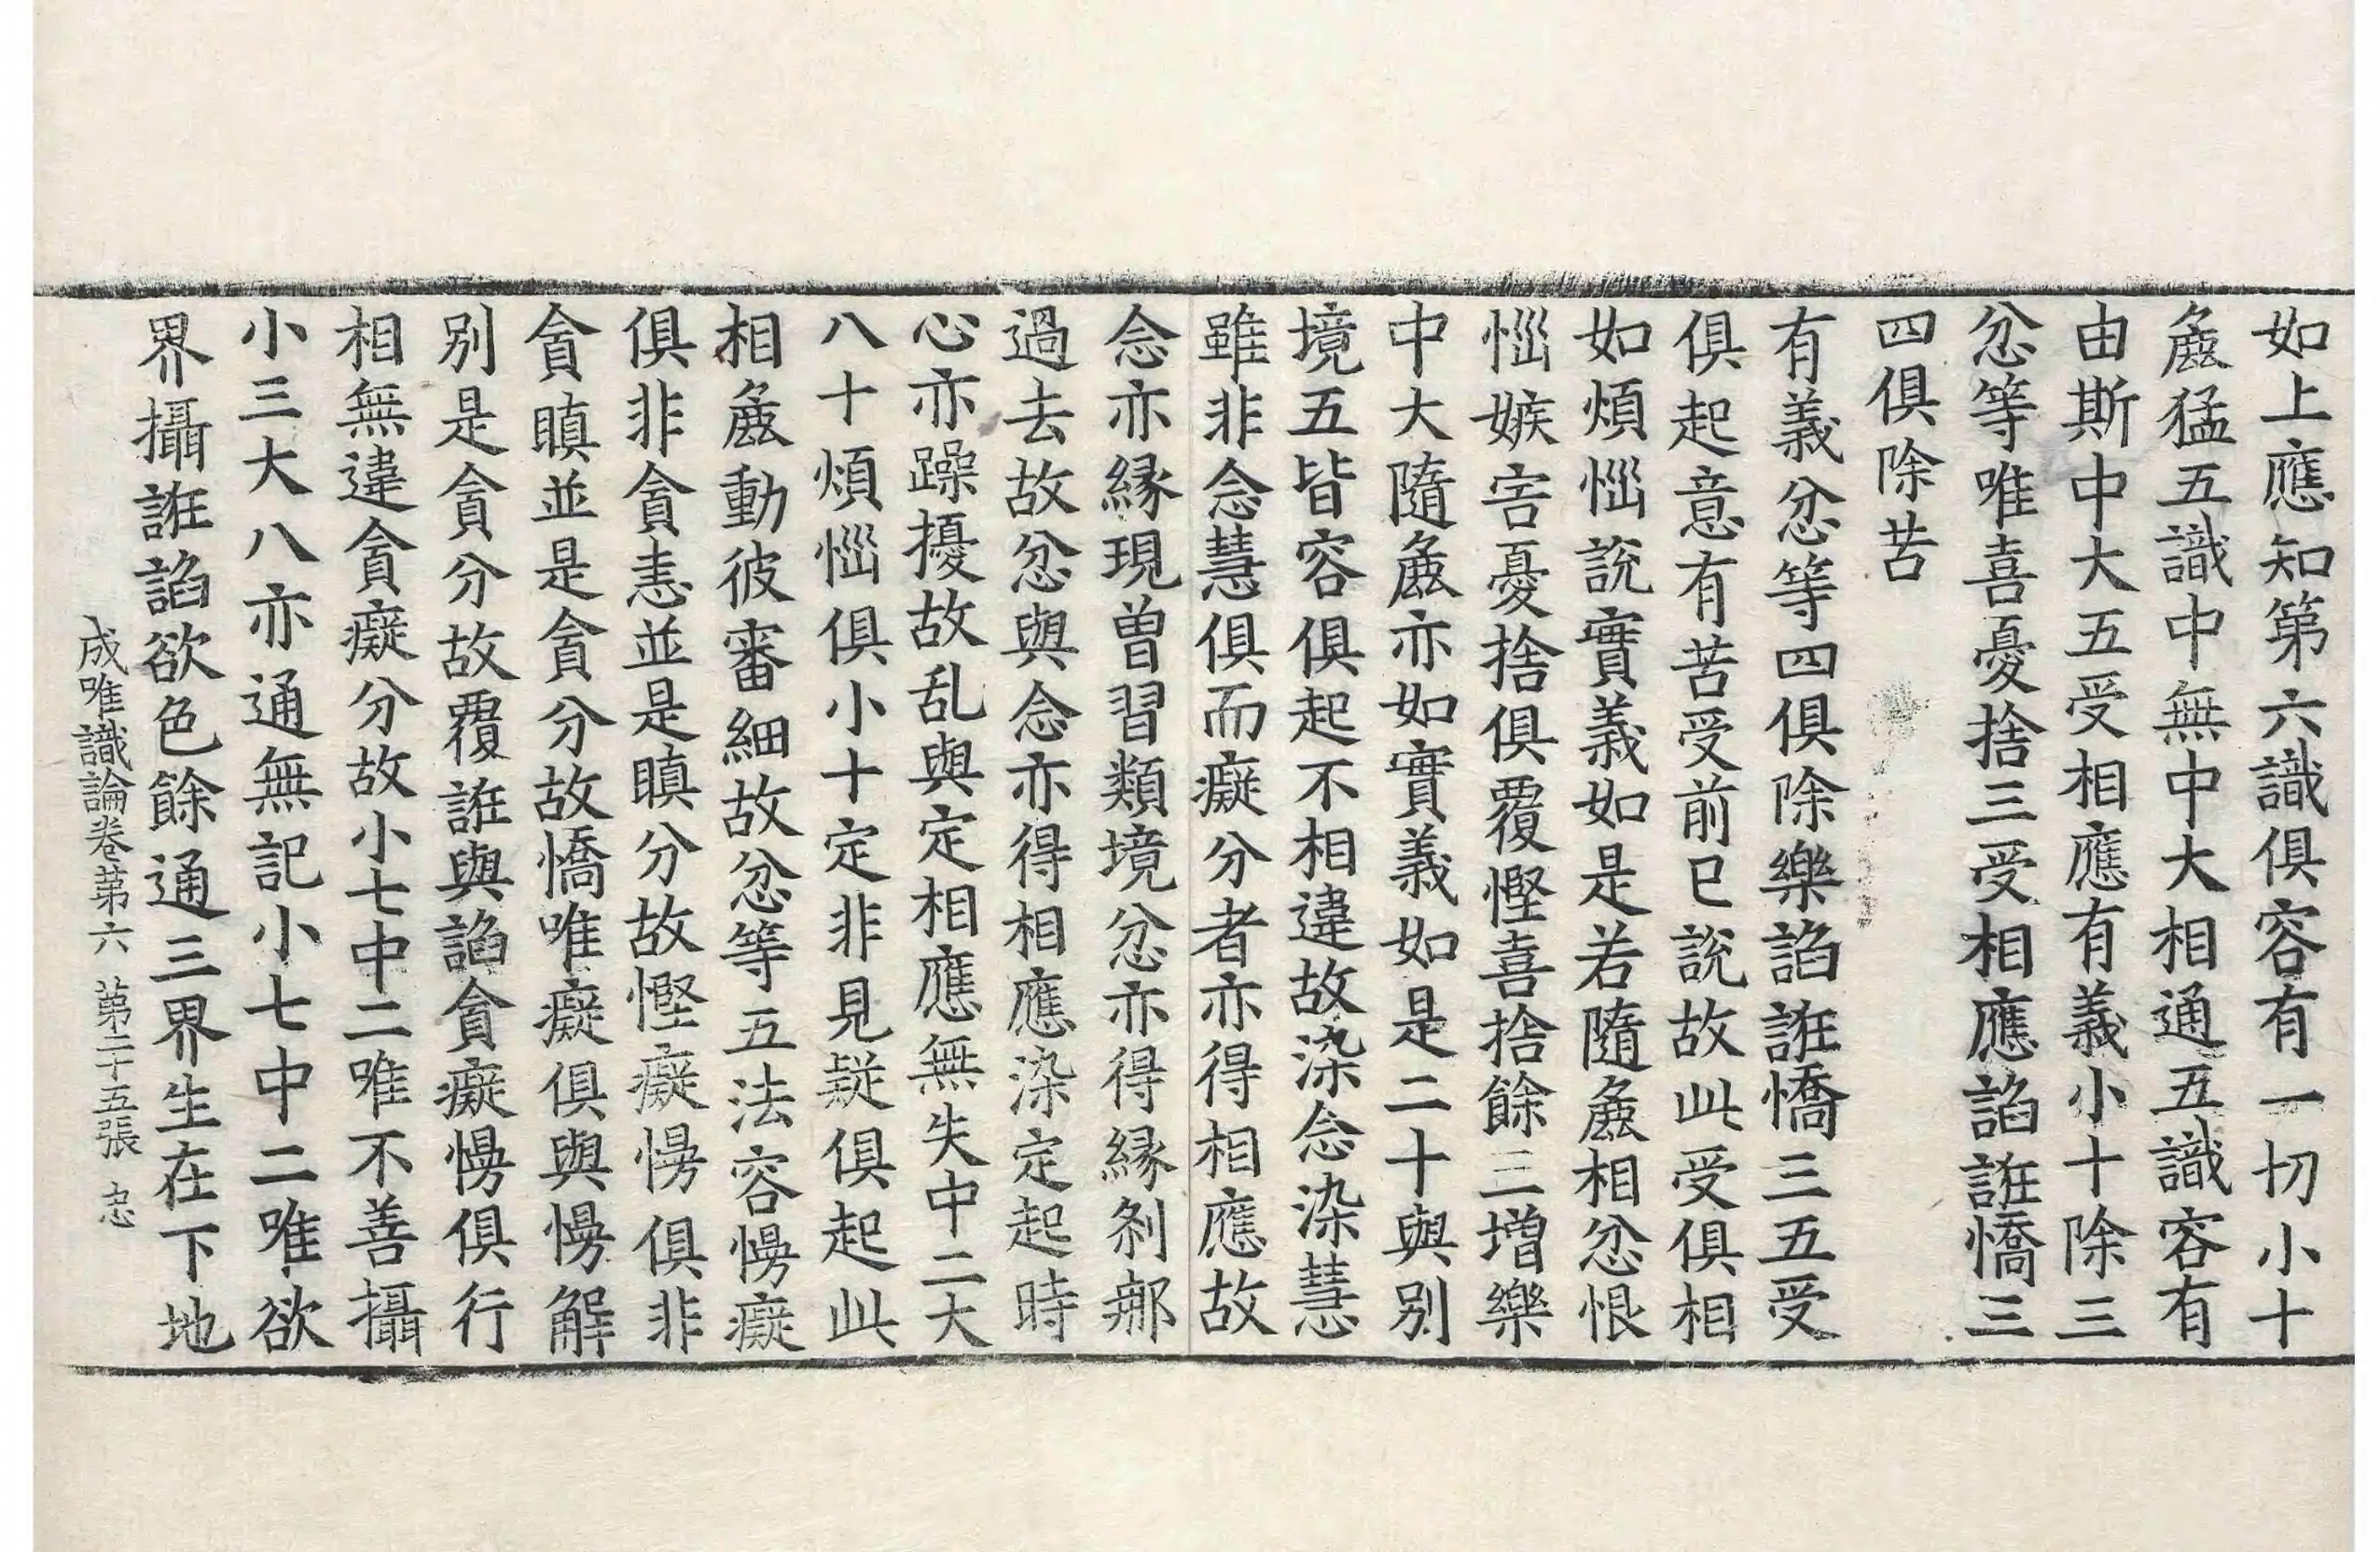 如上應知第六識俱容有一切小十
麁猛五識中無中大相通五識容有
由斯中大五受相應有義小十除三
忿等唯喜憂捨三受相應諂誑憍三
四俱除苦
有義忿等四俱除樂諂誑憍三五受
俱起意有苦受前已說故此受俱相
如煩惱說實義如是若隨麁相忿恨
惱嫉害憂捨俱覆慳喜捨餘三增樂
中大隨麁亦如實義如是二十與別
境五皆容俱起不相違故染念染慧
雖非念慧俱而癡分者亦得相應故
念亦緣現曾習類境忿亦得緣剎那
過去故忿與念亦得相應染定起時
心亦躁擾故乱與定相應無失中二大
八十煩惱俱小十定非見疑俱起此
相麁動彼審細故忿等五法容慢癡
俱非貪恚並是瞋分故慳癡慢俱非
貪瞋並是貪分故憍唯癡俱與慢解
別是貪分故覆誑與諂貪癡慢俱行
相無違貪癡分故小七中二唯不善攝
小三大八亦通無記小七中二唯欲
界攝誑諂欲色餘通三界生在下地
成唯識論卷第六 第二十五張 忠